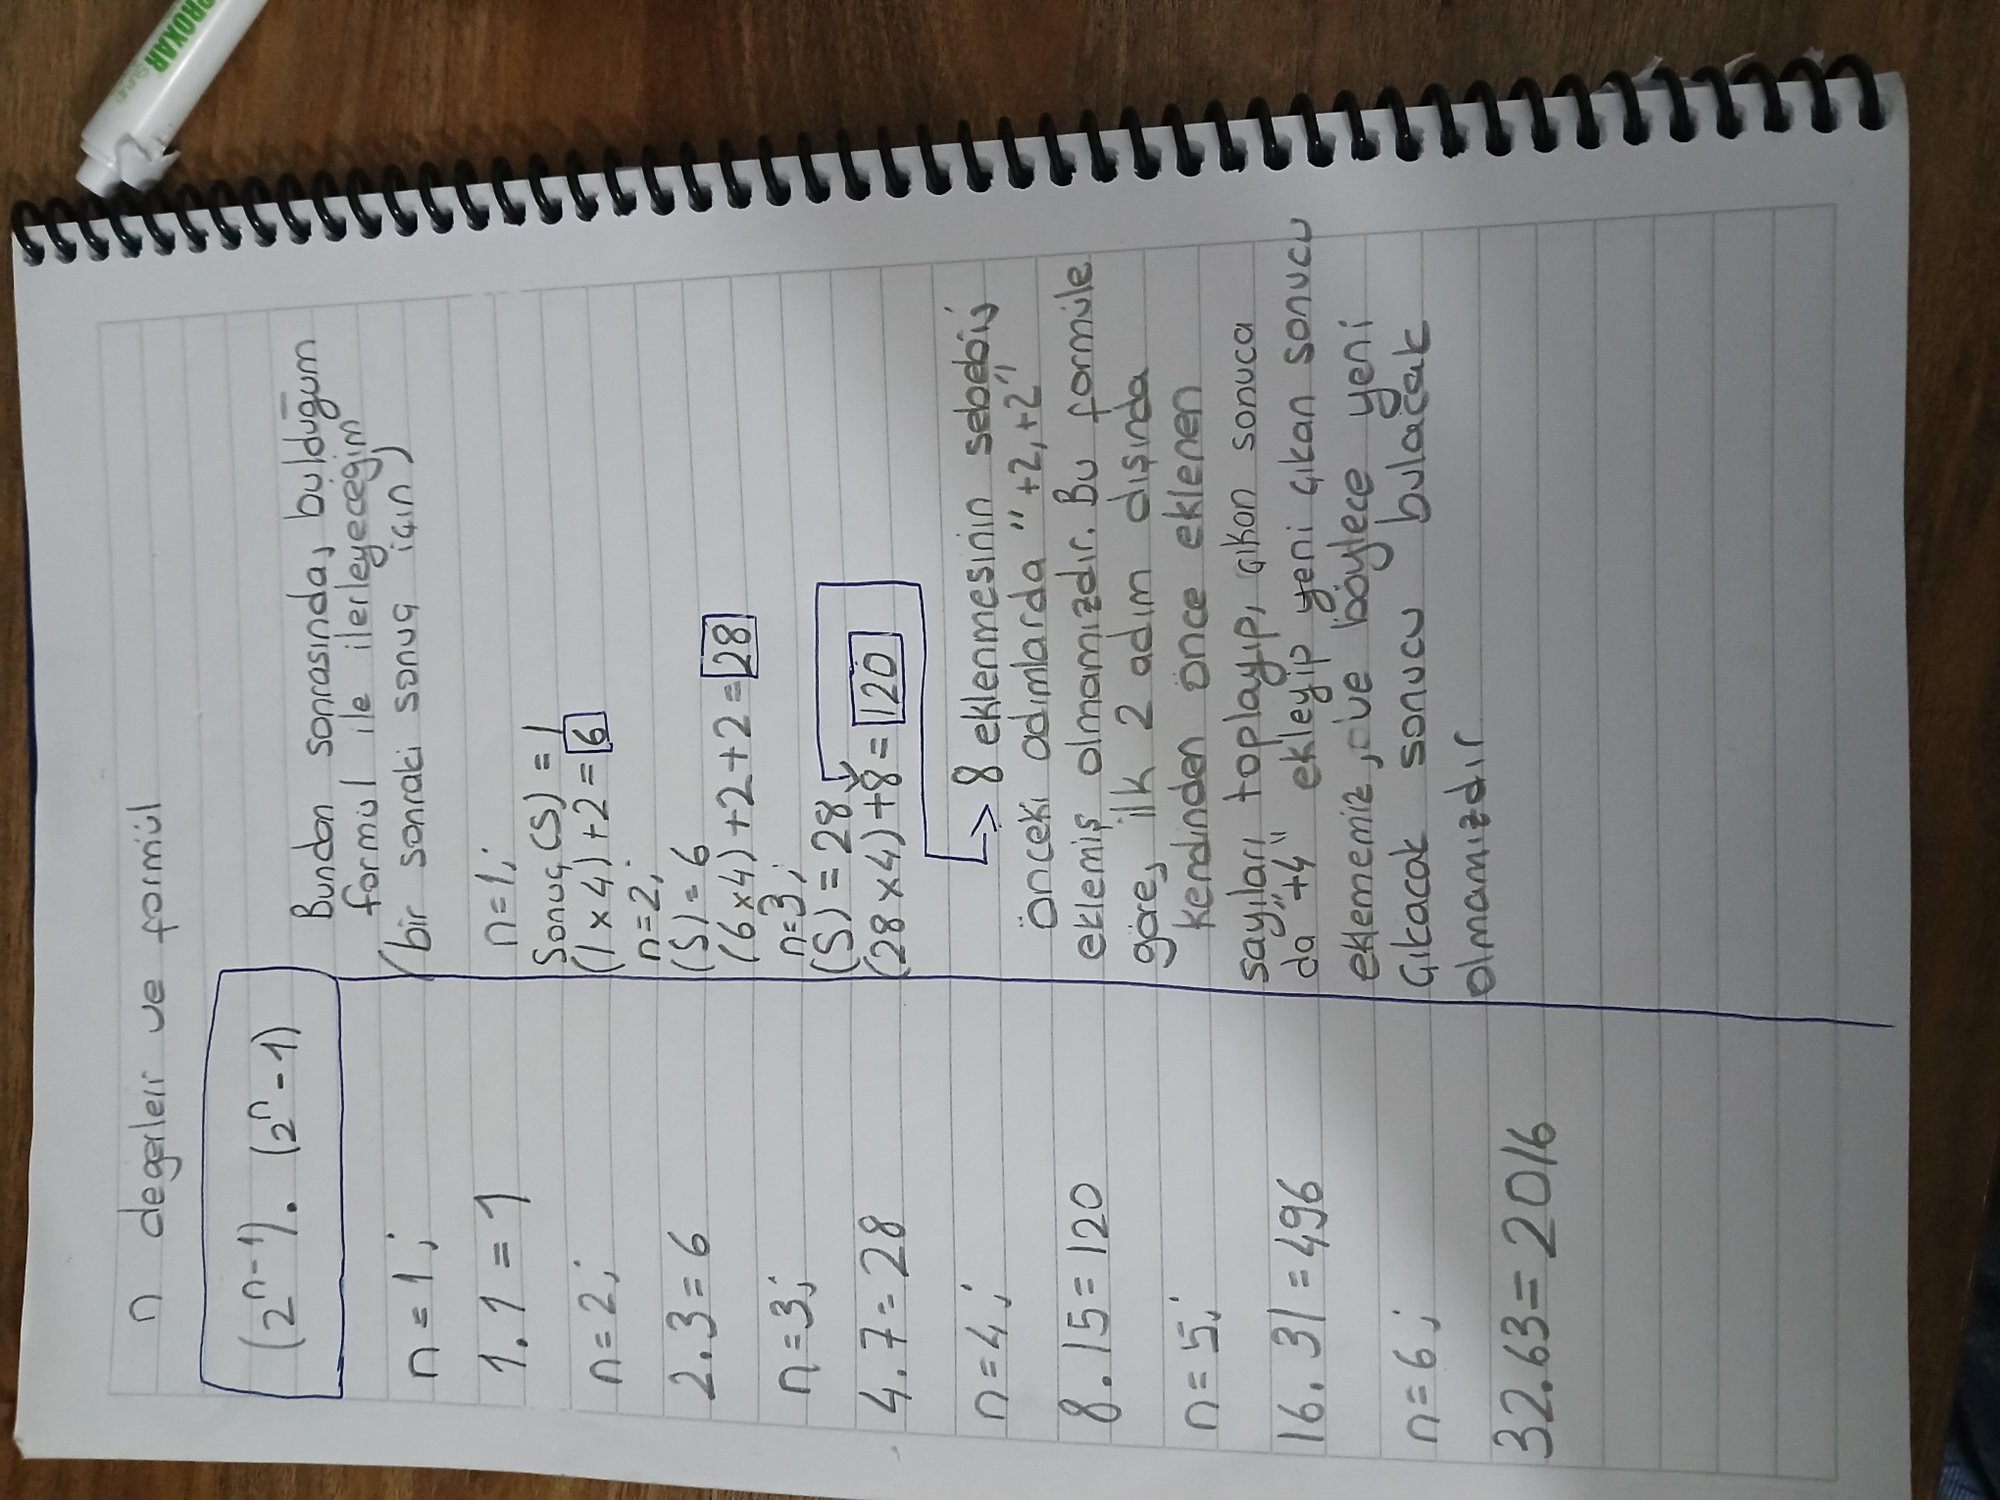 PROXAR
n değerleri ve formül
(2ⁿ-1). (2ⁿ-1)
n=1;
1.1=1
n=2;
2.3=6
n=3;
4.7=28
n=4;
8.15=120
n=5;
16.31=496
n=6;
32.63=2016
Bundan sonrasında, bulduğum
formül ile ilerleyeceğim
(bir sonraki sonuç için)
n=1;
Sonuç(S)=1
(1x4)+2=6
n=2;
(S)=6
(6x4)+2+2=28
n=3;
(S)=28
(28x4)+8=120
→ 8 eklenmesinin sebebi,
önceki adımlarda "+2,+2"
eklemiş olmamızdır. Bu formüle
göre, ilk 2 adım dışında
kendinden önce eklenen
sayıları toplayıp, çıkan sonuca
da "+4" ekleyip yeni çıkan sonucu
eklememiz, ve böylece yeni
çıkacak sonucu bulacak
olmamızdır